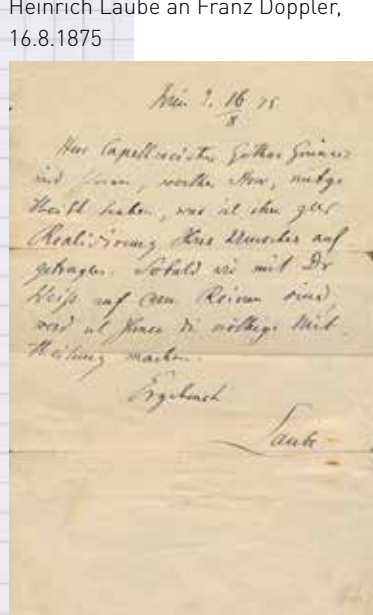 Heinrich Laube an Franz Doppler,
16.8.1875
Wien 16/8 75
Herr Capellmeister
und Ihnen, werther Herr, mitge
theilt haben, was ich ihm zur
Realisirung Ihres Wunsches auf
getragen. Sobald wir mit Dr
Weiß auf dem Reinen sind,
werd ich Ihnen die nöthige Mit
theilung machen.
Ergebenst
Laube